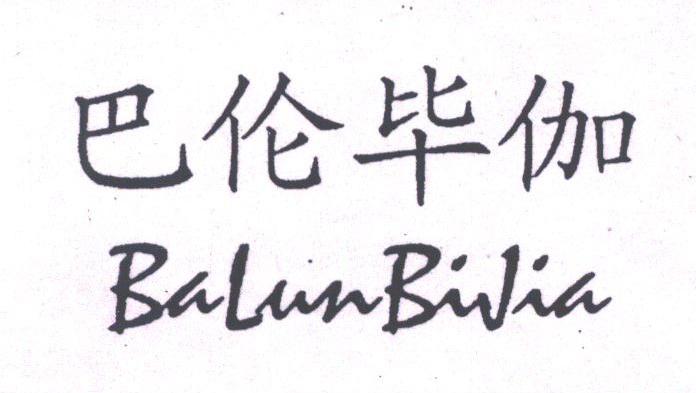 巴伦毕伽
BaLunBiJia